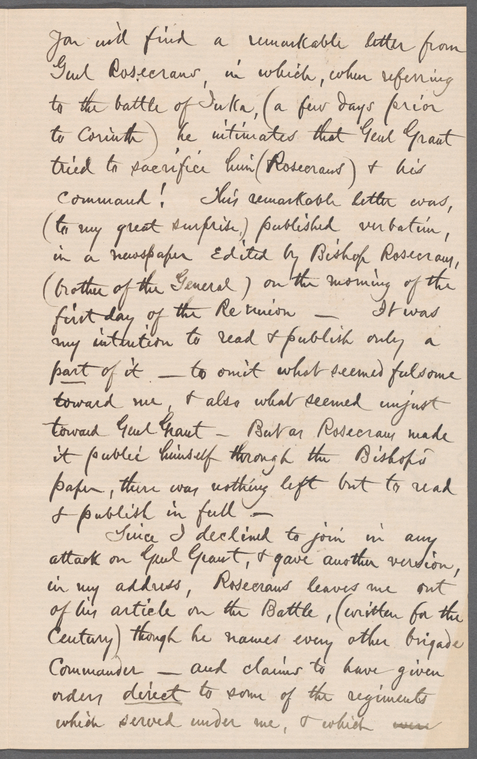 You will find a remarkable letter from
Genl Rosecrans, in which, when referring
to the battle of Iuka, (a few days prior
to Corinth) he intimates that Genl Grant
tried to sacrifice him (Rosecrans) & his
command! This remarkable letter was,
(to my great surprise,) published verbatim,
in a newspaper Edited by Bishop Rosecrans,
(brother of the General) on the morning of the
first day of the Reunion — It was
my intention to read & publish only a
part of it — to omit what seemed fulsome
toward me, & also what seemed unjust
toward Genl Grant — But as Rosecrans made
it public himself through the Bishop's
paper, there was nothing left but to read
& publish in full —
Since I declined to join in any
attack on Genl Grant, & gave another version,
in my address, Rosecrans leaves me out
of his article on the Battle, (written for the
Century) though he names every other brigade
Commander — and claims to have given
orders direct to some of the regiments
which served under me, & which were